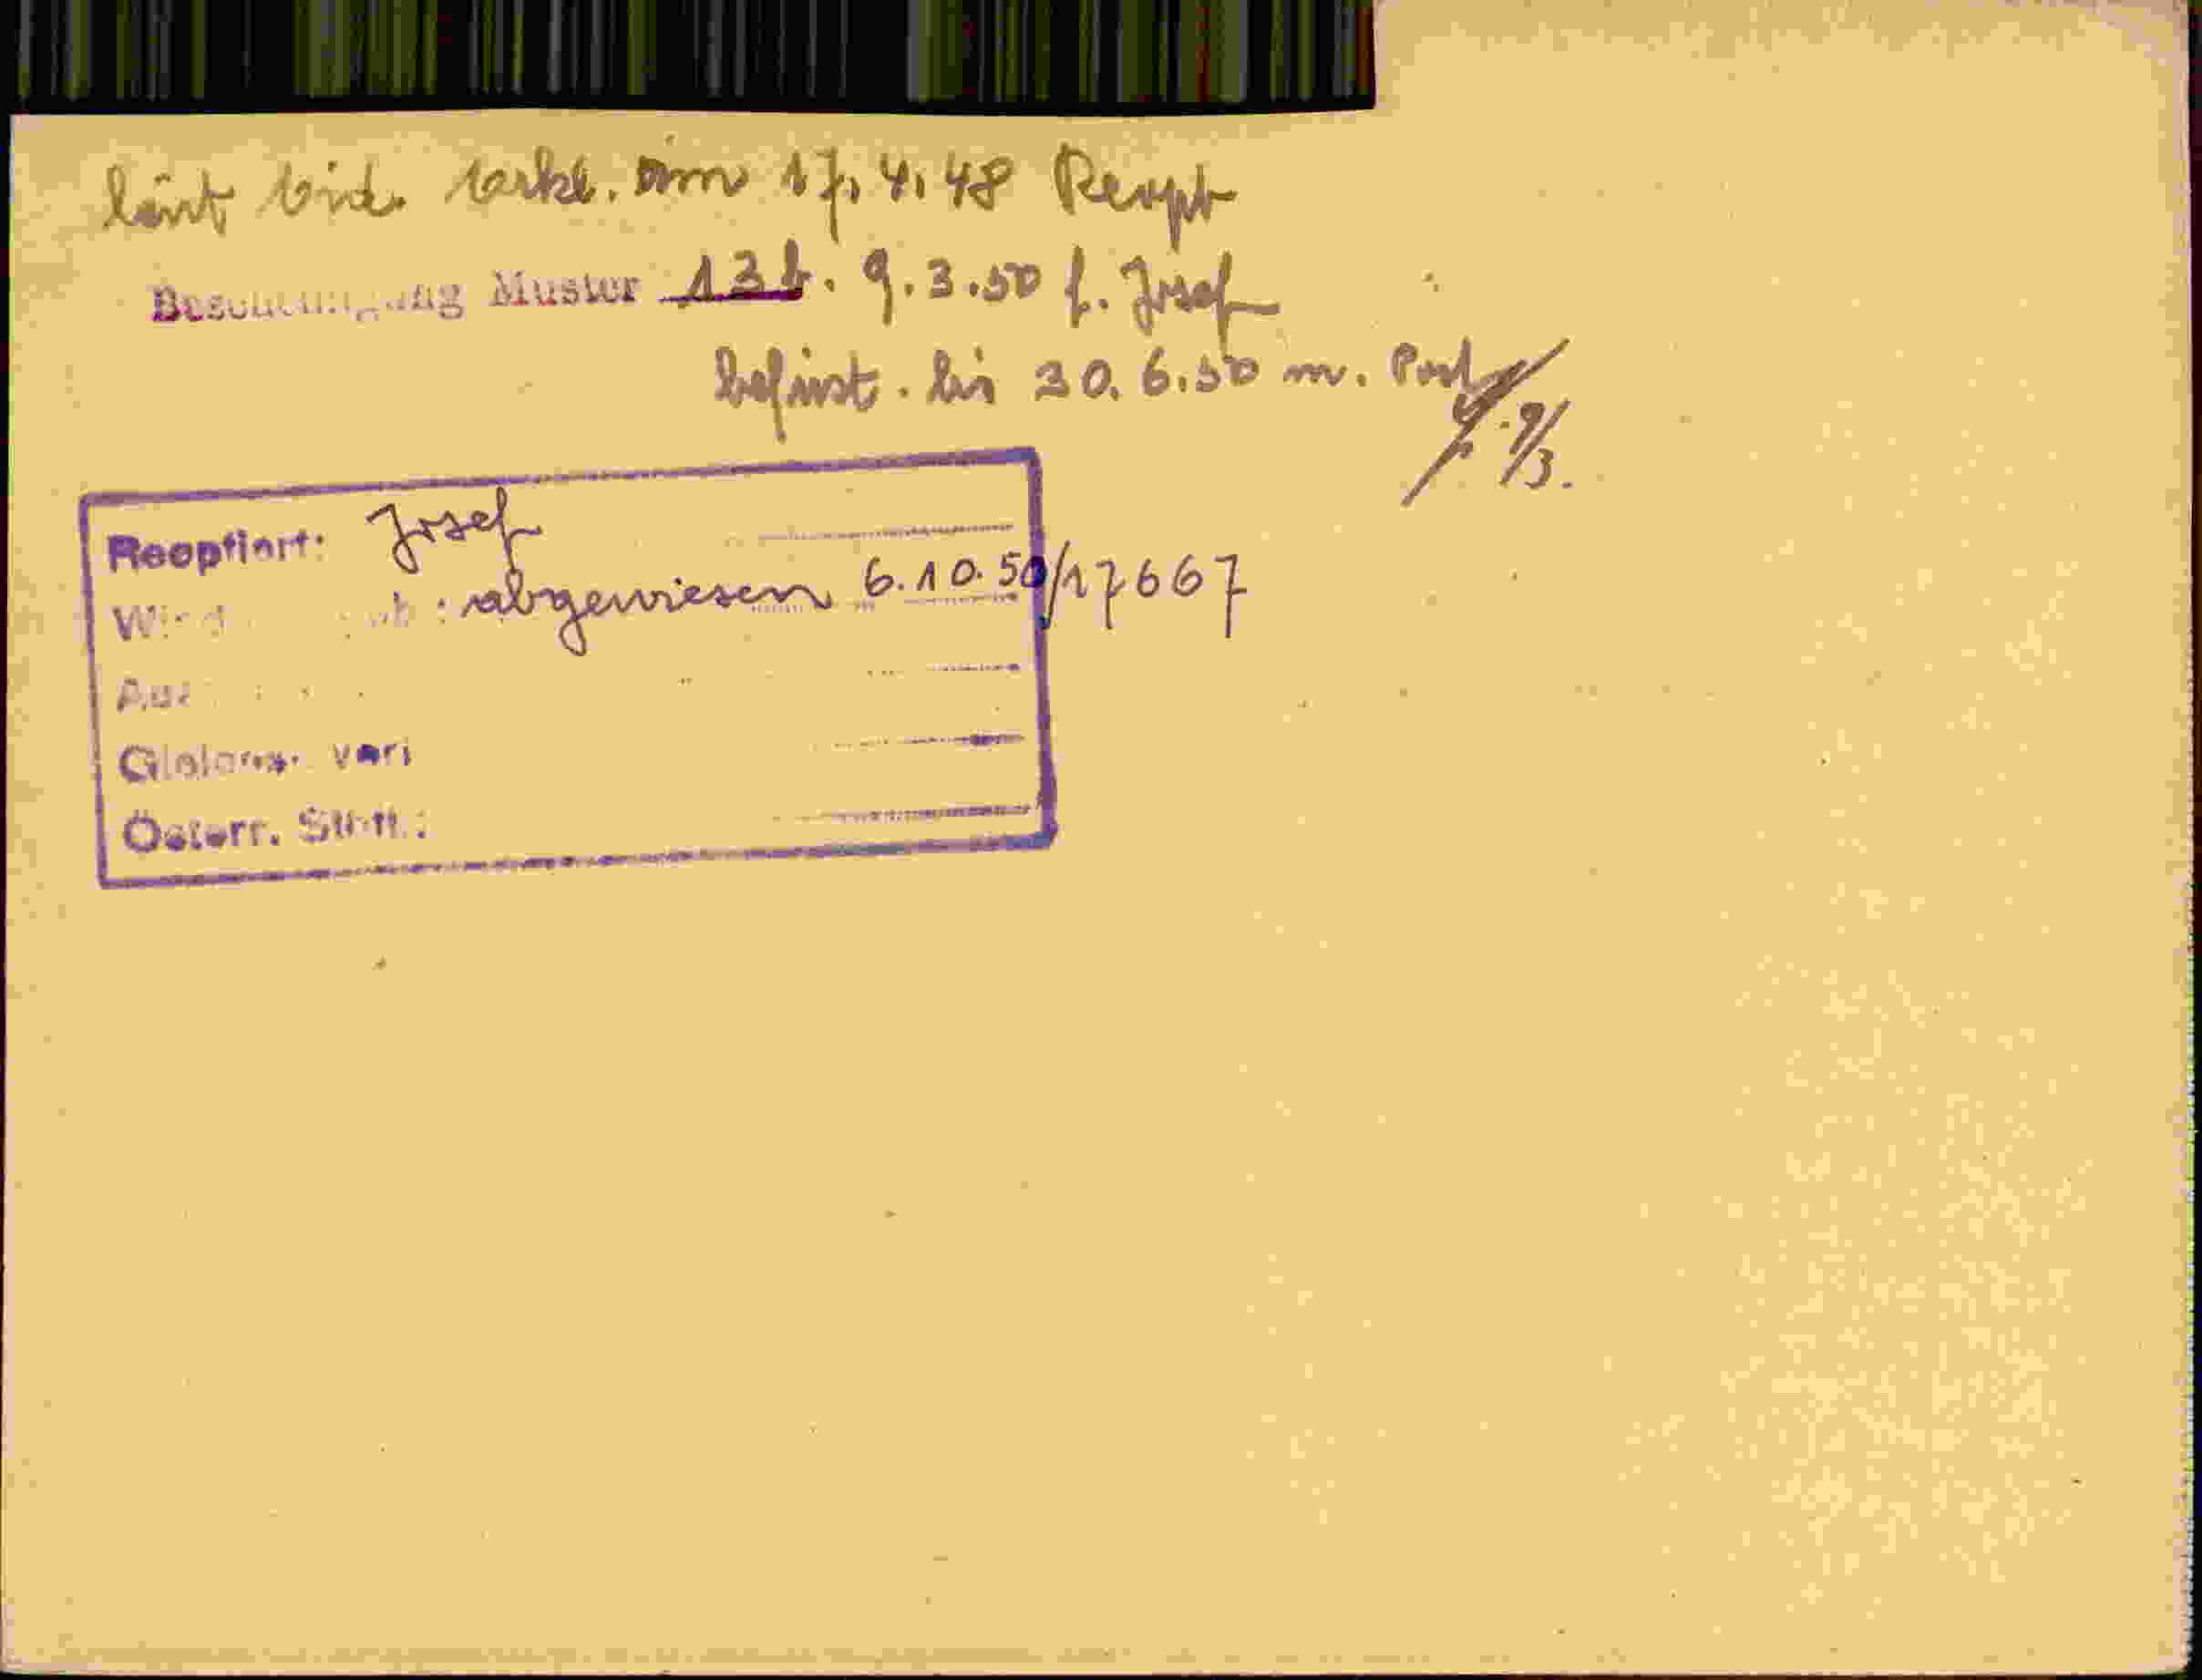 laut eid. Erkl. am 17.4.48 Reopt
Bescheinigung Muster 13b. 9.3.50 f. Josef
befrist. bis 30.6.50 m. Post
9/3.
Reoptiert: Josef
abgewiesen 6.10.50/17667
Österr. Stitt.: